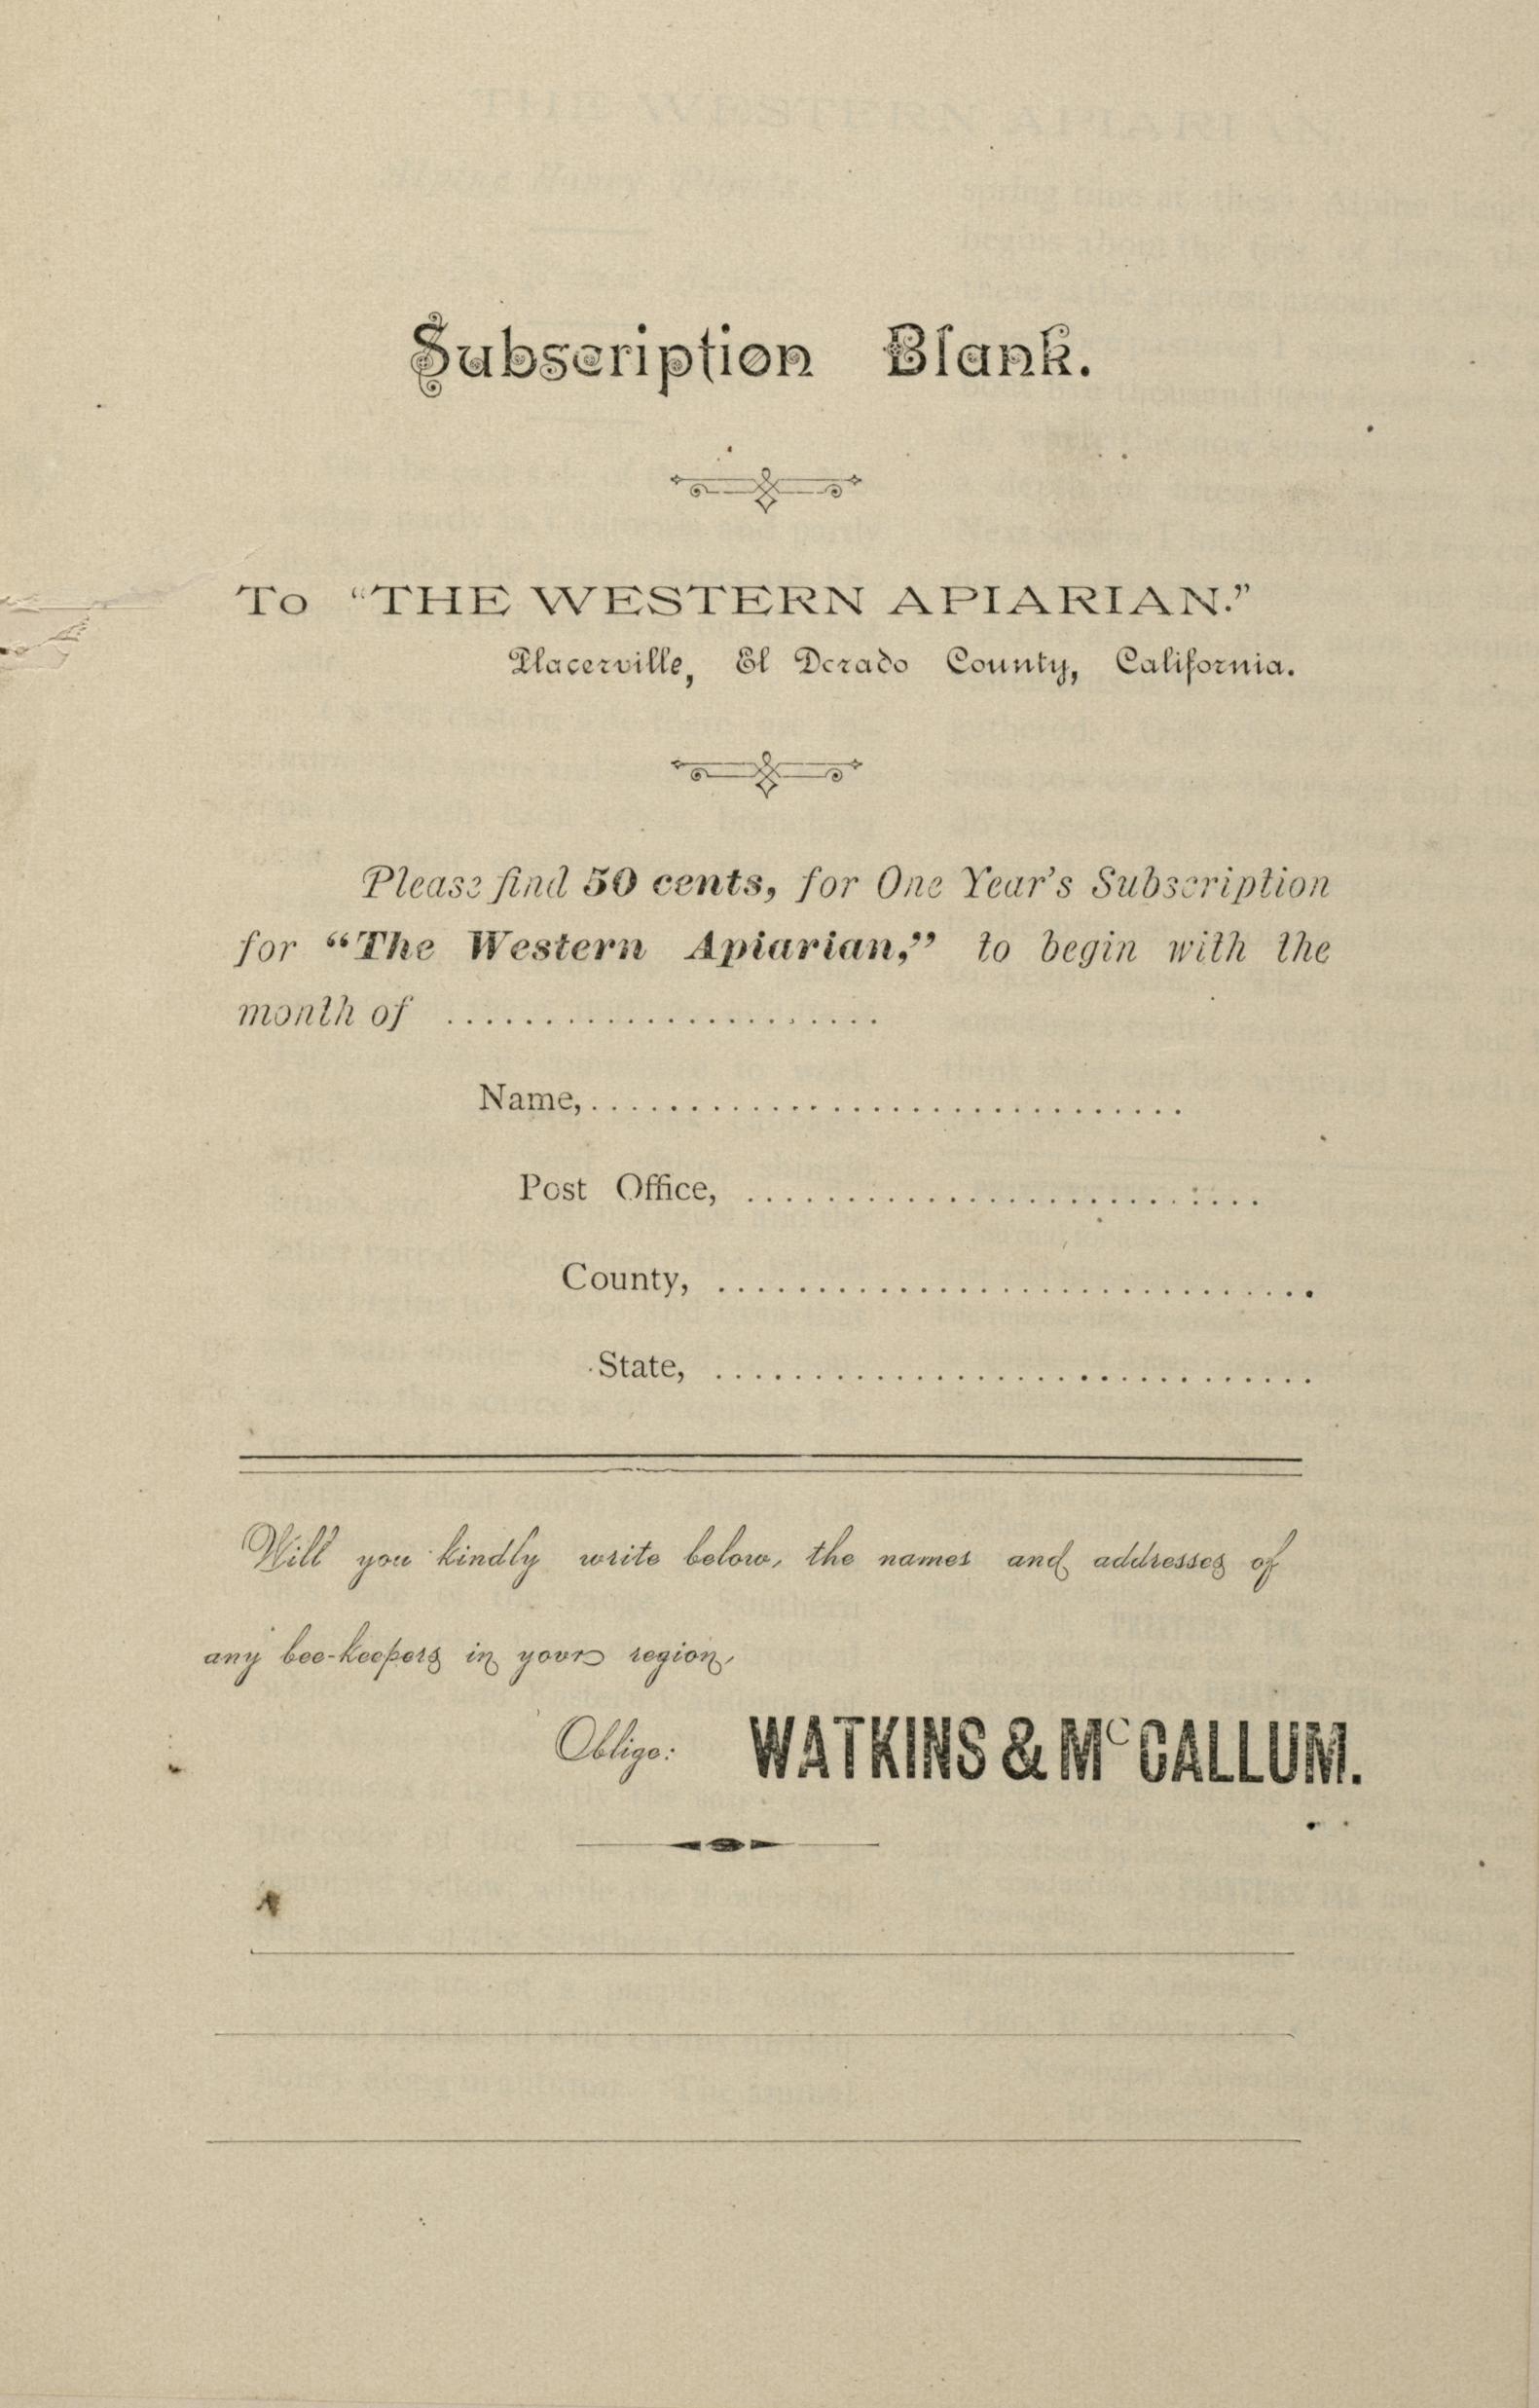 Subscription Blank.
To "THE WESTERN APIARIAN."
Placerville, El Dorado County, California.
Please find 50 cents, for One Year's Subscription
for "The Western Apiarian," to begin with the
month of ......................
Name,..............................
Post Office, ..........................
County, ..............................
State, ..............................
Will you kindly write below, the names and addresses of
any bee-keepers in your region,
Oblige: WATKINS & McCALLUM.